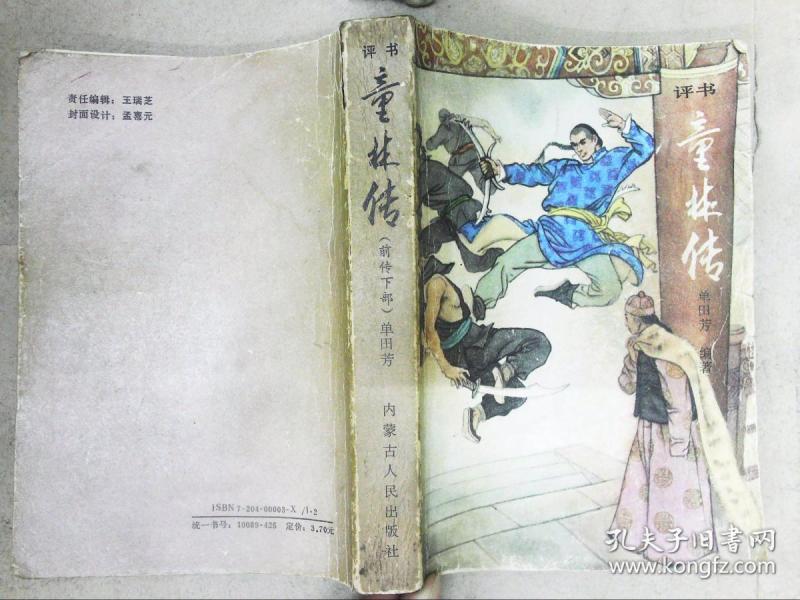 责任编辑：王瑞芝
封面设计：孟喜元
ISBN 7-204-00003-X /I·2
统一书号：10089·426 定价：3.70元
评书
童林传
（前传下部）
单田芳
内蒙古人民出版社
评书
童林传
单田芳 编著
孔夫子旧书网
www.kongfz.com